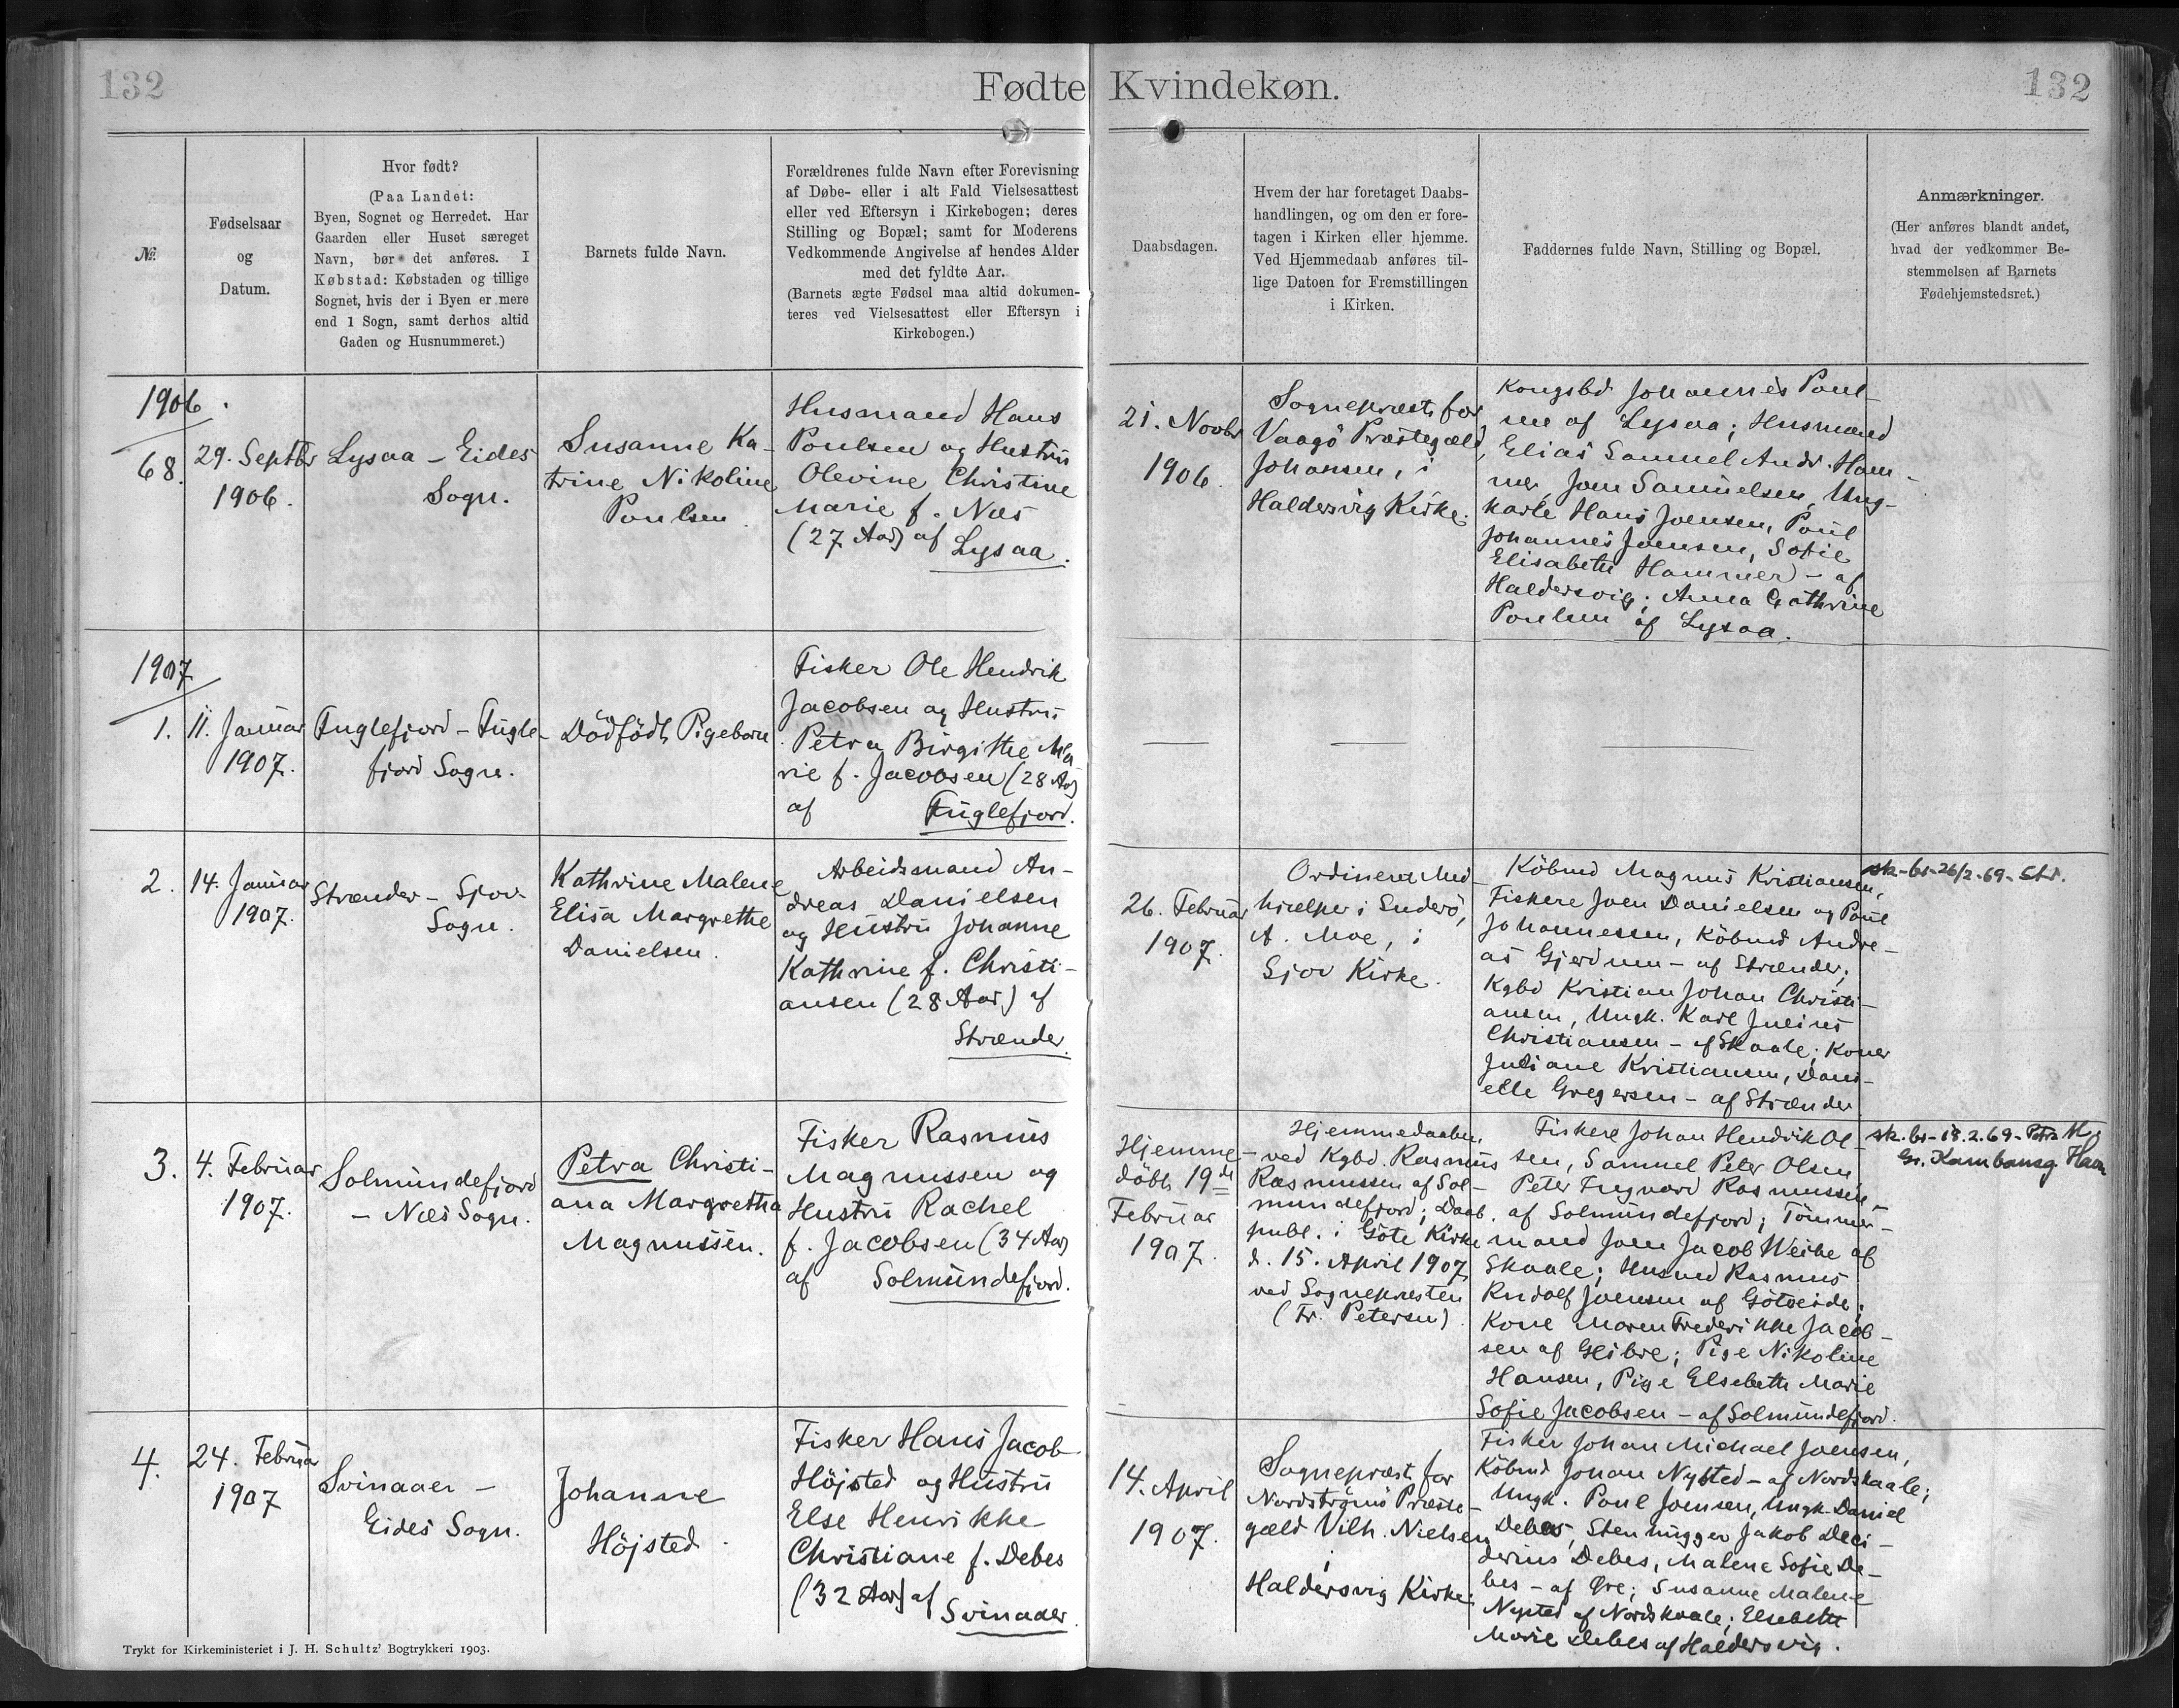 132
Fødte Kvindekøn.
132
№
Fødselsaar
og
Datum.
Hvor født?
(Paa Landet:
Byen, Sognet og Herredet. Har
Gaarden eller Huset særeget
Navn, bør det anføres. I
Købstad: Købstaden og tillige
Sognet, hvis der i Byen er mere
end 1 Sogn, samt derhos altid
Gaden og Husnummeret.)
Barnets fulde Navn.
Forældrenes fulde Navn efter Forevisning
af Døbe- eller i alt Fald Vielsesattest
eller ved Eftersyn i Kirkebogen; deres
Stilling og Bopæl; samt for Moderens
Vedkommende Angivelse af hendes Alder
med det fyldte Aar.
(Barnets ægte Fødsel maa altid dokumen-
teres ved Vielsesattest eller Eftersyn i
Kirkebogen.)
Daabsdagen.
Hvem der har foretaget Daabs-
handlingen, og om den er fore-
tagen i Kirken eller hjemme.
Ved Hjemmedaab anføres til-
lige Datoen for Fremstillingen
i Kirken.
Faddernes fulde Navn, Stilling og Bopæl.
Anmærkninger.
(Her anføres blandt andet,
hvad der vedkommer Be-
stemmelsen af Barnets
Fødehjemstedsret.)
1906.
68.
29. Septbr
1906.
Lysaa - Eides
Sogn.
Susanne Ka-
trine Nikoline
Poulsen.
Husmand Hans
Poulsen og Hustru
Olevine Christine
Marie f. Næs
(27 Aar) af
Lysaa.
21. Novbr
1906.
Sognepræst for
Vaagö Præstegæld,
Johansen, i
Haldersvig Kirke.
Kongsbd Johannes Poul-
sen af Lysaa; Husmænd
Elias Samuel Andr. Ham-
mer, Joen Samuelsen, Ung-
karle Hans Joensen, Poul
Johannes Joensen, Sofie
Elisabeth Hammer - af
Haldersvig; Anna Cathrine
Poulsen af Lysaa.
1907
1.
11. Januar
1907.
Fuglefjord - Fugle-
fjord Sogn.
Dödfödt Pigebarn
Fisker Ole Hendrik
Jacobsen og Hustru
Petra Birgithe Ma-
rie f. Jacobsen (28 Aar)
af Fuglefjord.
2.
14. Januar
1907.
Strænder - Sjov
Sogn.
Kathrine Malene
Elisa Margrethe
Danielsen.
Arbeidsmand An-
dreas Danielsen
og Hustru Johanne
Kathrine f. Christi-
ansen (28 Aar) af
Strænder.
26. Februar
1907.
Ordineret Med-
hjælper i Suderö,
A. Moe, i
Sjov Kirke.
Köbmd Magnus Kristiansen,
Fiskere Joen Danielsen og Poul
Johannessen, Köbmd Andre-
as Gjerdum - af Strænder;
Kgbd Kristian Johan Christi-
ansen, Ungk. Karl Julius
Christiansen - af Skaale; Koner
Juliane Kristiansen, Dani-
elle Gregersen - af Strænder
sk-br-26/2-69-Str.
3.
4. Februar
1907.
Solmundefjord
- Næs Sogn.
Petra Christi-
ana Margretha
Magnussen.
Fisker Rasmus
Magnussen og
Hustru Rachel
f. Jacobsen (34 Aar)
af Solmundefjord.
Hjemme-
döbt 19de
Februar
1907.
Hjemmedaaben
ved Kgbd. Rasmus
Rasmussen af Sol-
mundefjord; Daab.
publ. i Göte Kirke
d. 15. April 1907
ved Sognepræsten
(Fr. Petersen).
Fiskere Johan Hendrik Ol-
sen, Samuel Peter Olsen
Peter Rasmussen -
af Solmundefjord; Tömmer-
mand Joen Jacob Weihe af
Skaale; Husmd Rasmus
Rudolf Joensen af Göteeide;
Kone Maren Frederikke Jacob-
sen af Glibre; Pige Nikoline
Hansen, Pige Elsebeth Marie
Sofie Jacobsen - af Solmundefjord.
sk.br-18.2.69-Petra M.
Gr. Kambansg. Havn
4.
24. Februar
1907
Svinaaer -
Eides Sogn.
Johanne
Höjsted.
Fisker Hans Jacob
Höjsted og Hustru
Else Henrikke
Christiane f. Debes
(32 Aar) af
Svinaaer.
14. April
1907.
Sognepræst for
Nordströmö Præste-
gæld Vilh. Nielsen
i
Haldersvig Kirke.
Fisker Johan Michael Joensen,
Köbmd Johan Nysted - af Nordskaale;
Ungk. Poul Joensen, Ungk. Daniel
Debes, Stenhugger Jakob Deci-
derius Debes, Malene Sofie De-
bes - af Öre; Susanne Malene
Nysted af Nordskaale; Elsebeth
Marie Debes af Haldersvig.
Trykt for Kirkeministeriet i J. H. Schultz' Bogtrykkeri 1903.